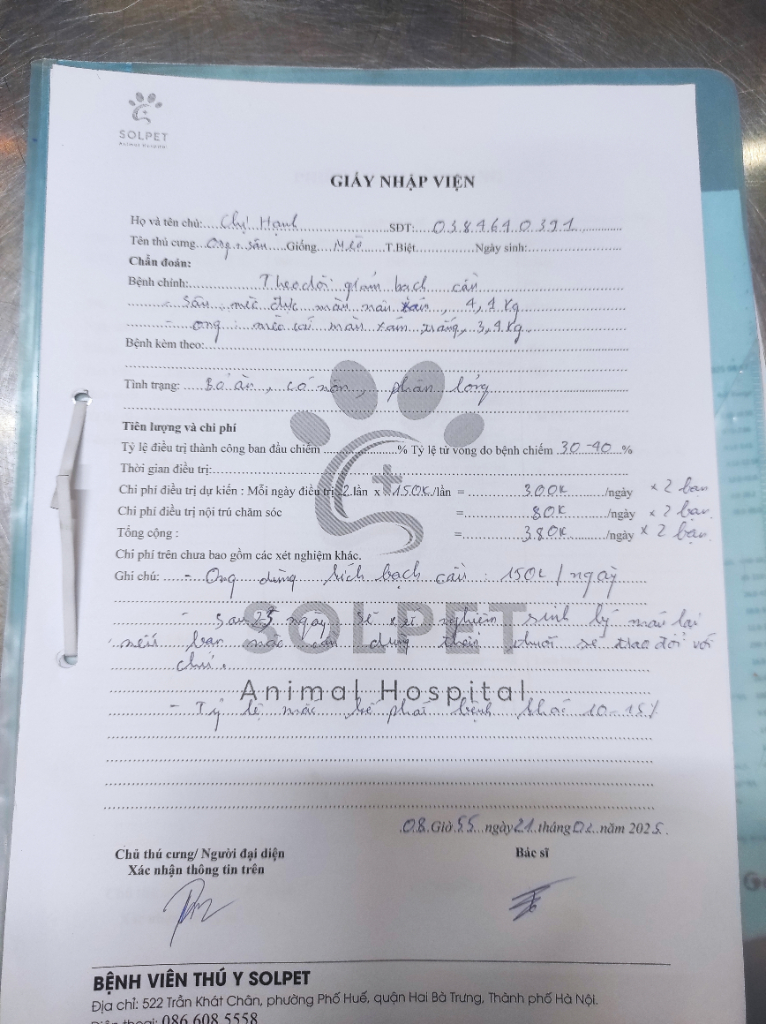 SOLPET
Animal Hospital
GIẤY NHẬP VIỆN
Họ và tên chủ: Chị Hạnh SĐT: 0384640391
Tên thú cưng Ong + sấn Giống Mèo T.Biệt Ngày sinh:
Chẩn đoán:
Bệnh chính: Theo dõi giảm bạch cầu
- Sấn mèo đực màu xám, 4,1 Kg
- Ong mèo cái màu xám trắng, 3,4 Kg
Bệnh kèm theo:
Tình trạng: Bỏ ăn, có nôn, phân lỏng
Tiên lượng và chi phí
Tỷ lệ điều trị thành công ban đầu chiếm % Tỷ lệ tử vong do bệnh chiếm 30-40 %
Thời gian điều trị:
Chi phí điều trị dự kiến : Mỗi ngày điều trị 2 lần x 150K/lần = 300K /ngày x 2 bạn
Chi phí điều trị nội trú chăm sóc 80K /ngày x 2 bạn
Tổng cộng : = 380K /ngày x 2 bạn
Chi phí trên chưa bao gồm các xét nghiệm khác.
Ghi chú: - Ong dùng kích bạch cầu 150K / ngày
- Sau ngày sẽ xét nghiệm sinh lý máu lại
nếu bạn nào cần dùng thêm thuốc sẽ trao đổi với
chủ.
SOLPET
Animal Hospital
- Tỷ lệ mắc kế phát bệnh khác 10-15%
08 Giờ 55 ngày 21 tháng 02 năm 2025
Chủ thú cưng/ Người đại diện
Xác nhận thông tin trên
Bác sĩ
BỆNH VIỆN THÚ Y SOLPET
Địa chỉ: 522 Trần Khát Chân, phường Phố Huế, quận Hai Bà Trưng, Thành phố Hà Nội.
Điện thoại: 086 608 5558